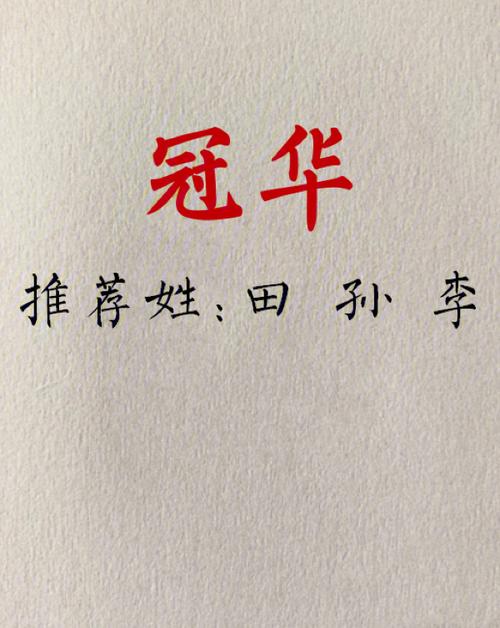 冠华
推荐姓:田 孙 李